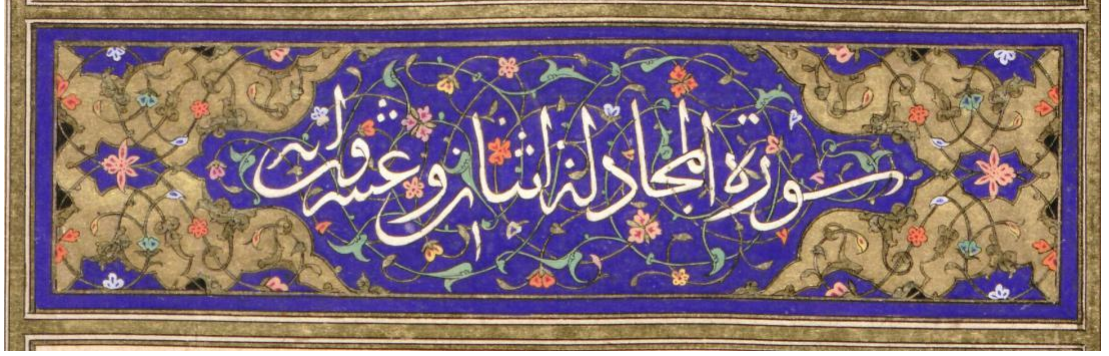 سورة المجادلة اثنان وعشرون اية